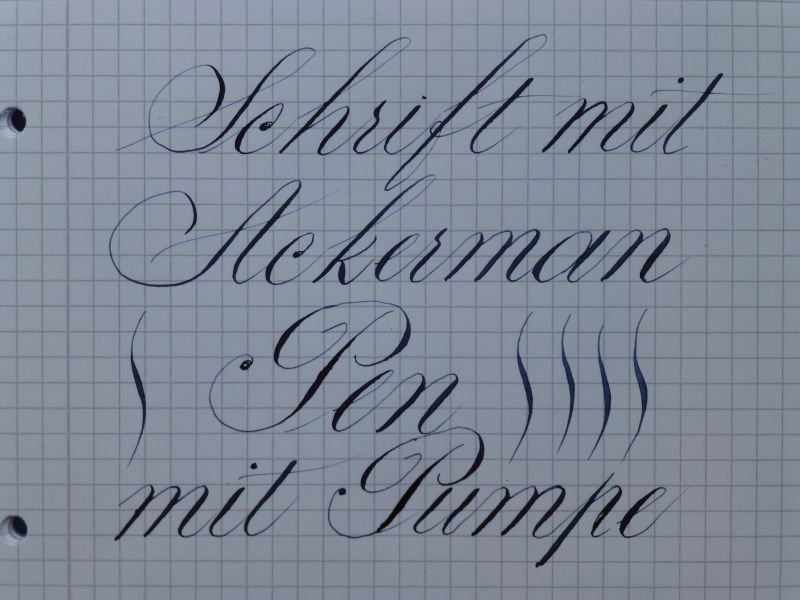 Schrift mit
Ackerman
Pen
mit Pumpe